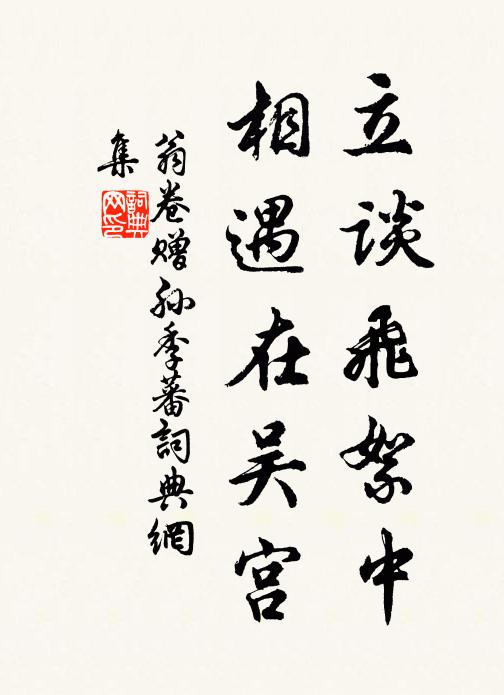 立谈飛絮中
相遇在吴宫
翁卷赠孙季蕃詞典網
集
詞典
网印